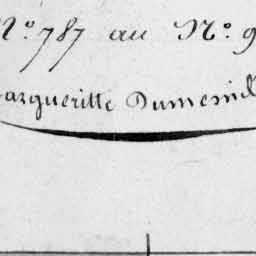 N.o 787 au N.o 9
argueritte Dumesnil